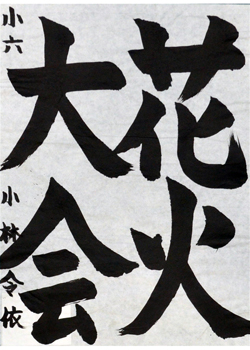 花火
大会
小六 小林令依